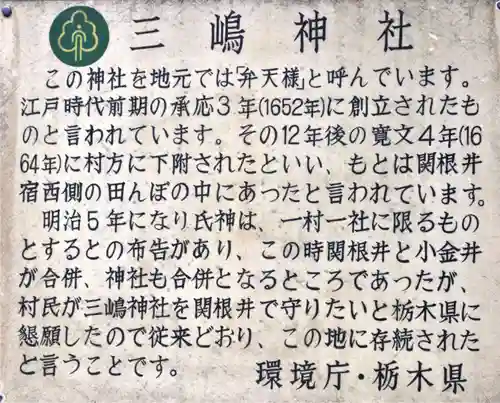 三嶋神社
この神社を地元では「弁天様」と呼んでいます。
江戸時代前期の承応3年(1652年)に創立されたも
のと言われています。その12年後の寛文4年(16
64年)に村方に下附されたといい、もとは関根井
宿西側の田んぼの中にあったと言われています。
明治5年になり氏神は、一村一社に限るもの
とするとの布告があり、この時関根井と小金井
が合併、神社も合併となるところであったが、
村民が三嶋神社を関根井で守りたいと栃木県に
懇願したので従来どおり、この地に存続された
と言うことです。
環境庁・栃木県